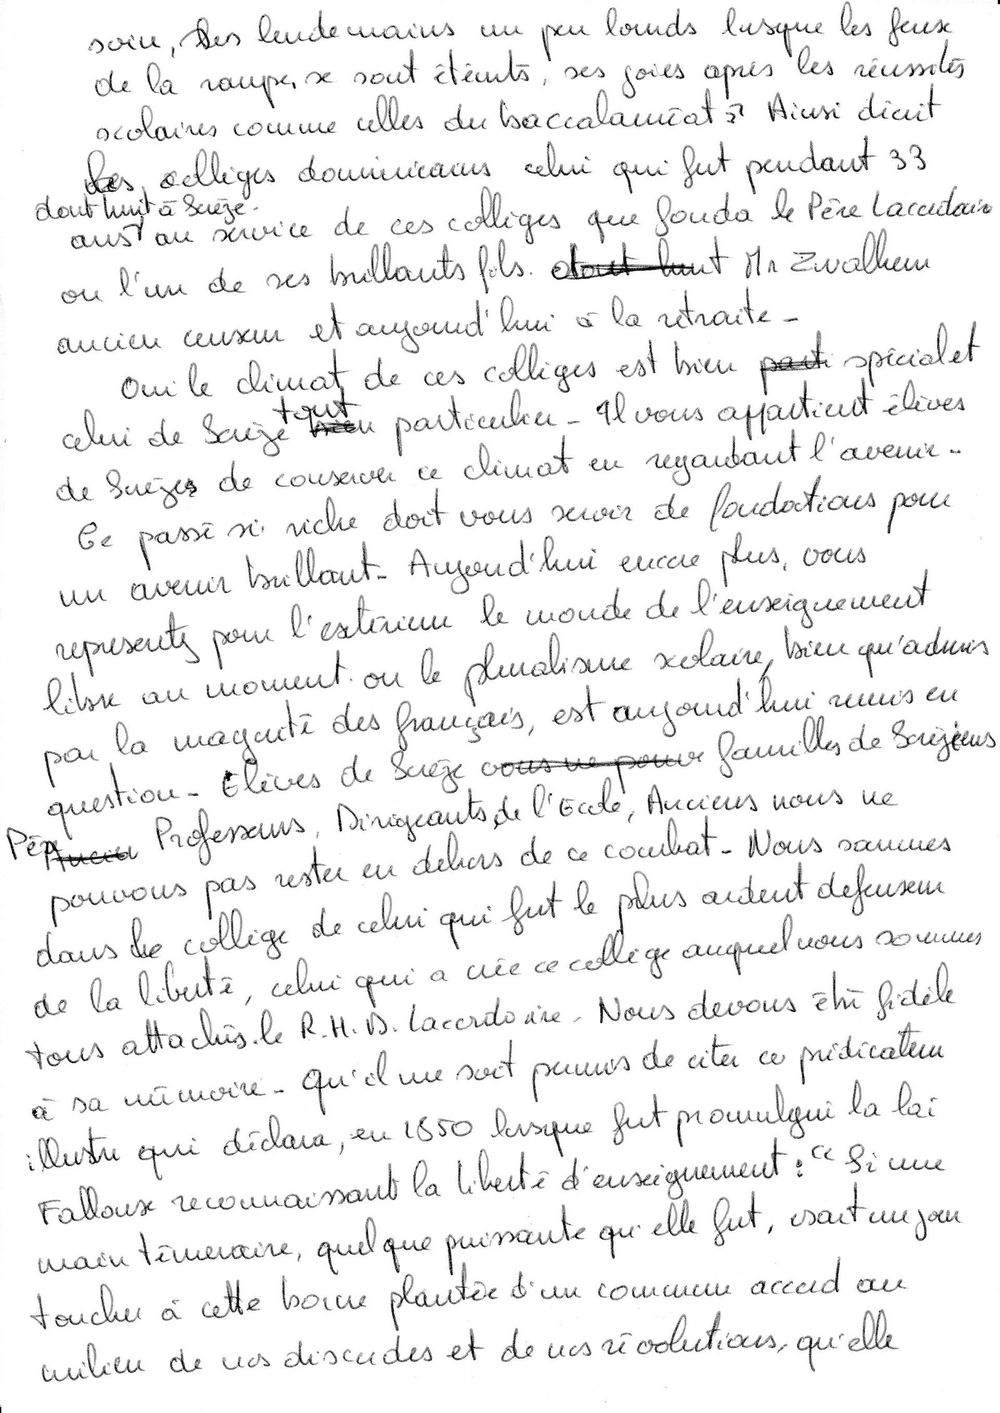 soin, Ses lendemains un peu lourds lusque les feux
de la rampe, se sont êteints, ses joies après les réussites
scolaires comme celles du baccalaureat ? Ainsi dècrit
les collèges dominicains celui qui fut pendant 33
dont huit à Sorèze.
ans au service de ces collèges que fonda le Père Lacordaire
ou l'un de ses brillants fils. dont huit Mr Zwalhem
ancien censeur et aujourd'hui à la retraite -
Oui le climat de ces collèges est bien parti spécial et
tout
celui de Sorèze bien particulier - Il vous appartient élèves
de Sorèze de conserver ce climat en regardant l'avenir -
Ce passé si riche doit vous servir de fondations pour
un avenir brillant - Aujourd'hui encore plus, vous
representez pour l'extérieur le monde de l'enseignement
libre au moment ou le pluralisme scolaire, bien qu'admis
par la majorité des français, est aujourd'hui remis en
question - Elèves de Sorèze vous ne pouve familles de Sorèziens
Ancien Professeurs, Dirigeants de l'Ecole, Anciens nous ne
pouvons pas rester en dehors de ce combat - Nous sommes
dans le collège de celui qui fut le plus ardent defenseur
de la liberté, celui qui a crée ce collège auquel nous sommes
tous attachés. le R.H.D. Lacordaire - Nous devons être fidèle
à sa mémoire - Qu'il me soit permis de citer ce prédicateur
illustre qui déclara, en 1850 lorsque fut promulgui la loi
Falloux reconnaissant la liberté d'enseignement : " Si une
main téméraire, quelque puissante qu'elle fut, osait un jour
toucher à cette borne plantée d'un commun accord au
milieu de nos discordes et de nos révolutions, qu'elle